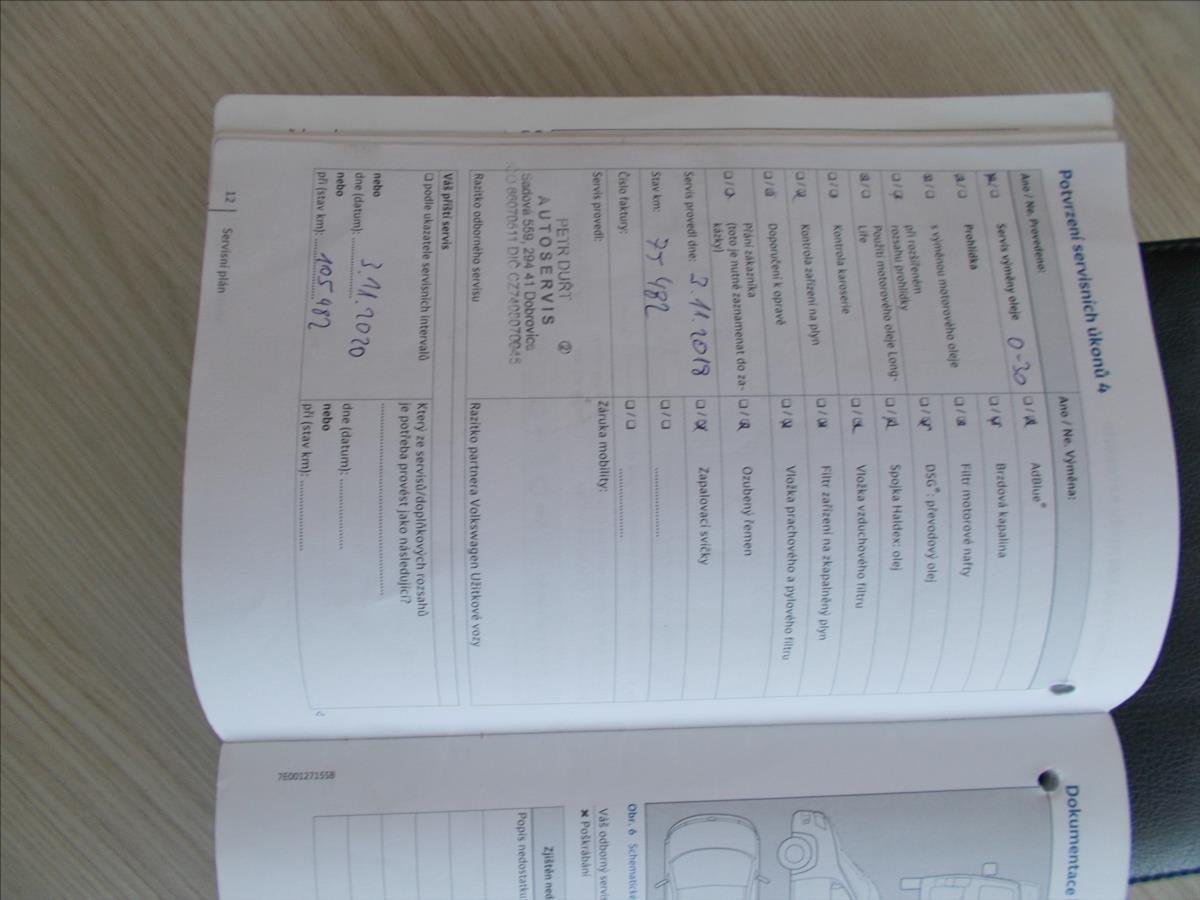 Potvrzení servisních úkonů 4
Ano / Ne. Provedeno:
Servis výměny oleje 0-30
Prohlídka
s výměnou motorového oleje
při rozšířeném
rozsahu prohlídky
Použití motorového oleje Long-
Life
Kontrola karoserie
Kontrola zařízení na plyn
Doporučení k opravě
Přání zákazníka
(toto je nutné zaznamenat do za-
kázky)
Servis provedl dne: 3.11.2018
Stav km: 75 482
Číslo faktury:
Servis provedl:
PETR DUŘT
AUTOSERVIS ②
Sadová 559, 294 41 Dobrovice
Razítko odborného servisu
Ano / Ne. Výměna:
AdBlue®
Brzdová kapalina
Filtr motorové nafty
DSG®: převodový olej
Spojka Haldex: olej
Vložka vzduchového filtru
Filtr zařízení na zkapalněný plyn
Vložka prachového a pylového filtru
Ozubený řemen
Zapalovací svíčky
Záruka mobility:
Razítko partnera Volkswagen Užitkové vozy
Váš příští servis
podle ukazatele servisních intervalů
nebo
dne (datum): 3.11.2020
nebo
při (stav km): 105 982
Který ze servisů/doplňkových rozsahů
je potřeba provést jako následující?
dne (datum):
nebo
při (stav km):
12 Servisní plán
Dokumentace
Obr. 6 Schematické
Váš odborný servis
✖ Poškrábání
Zjištěn ned
Popis nedostatku
7E0012715SB